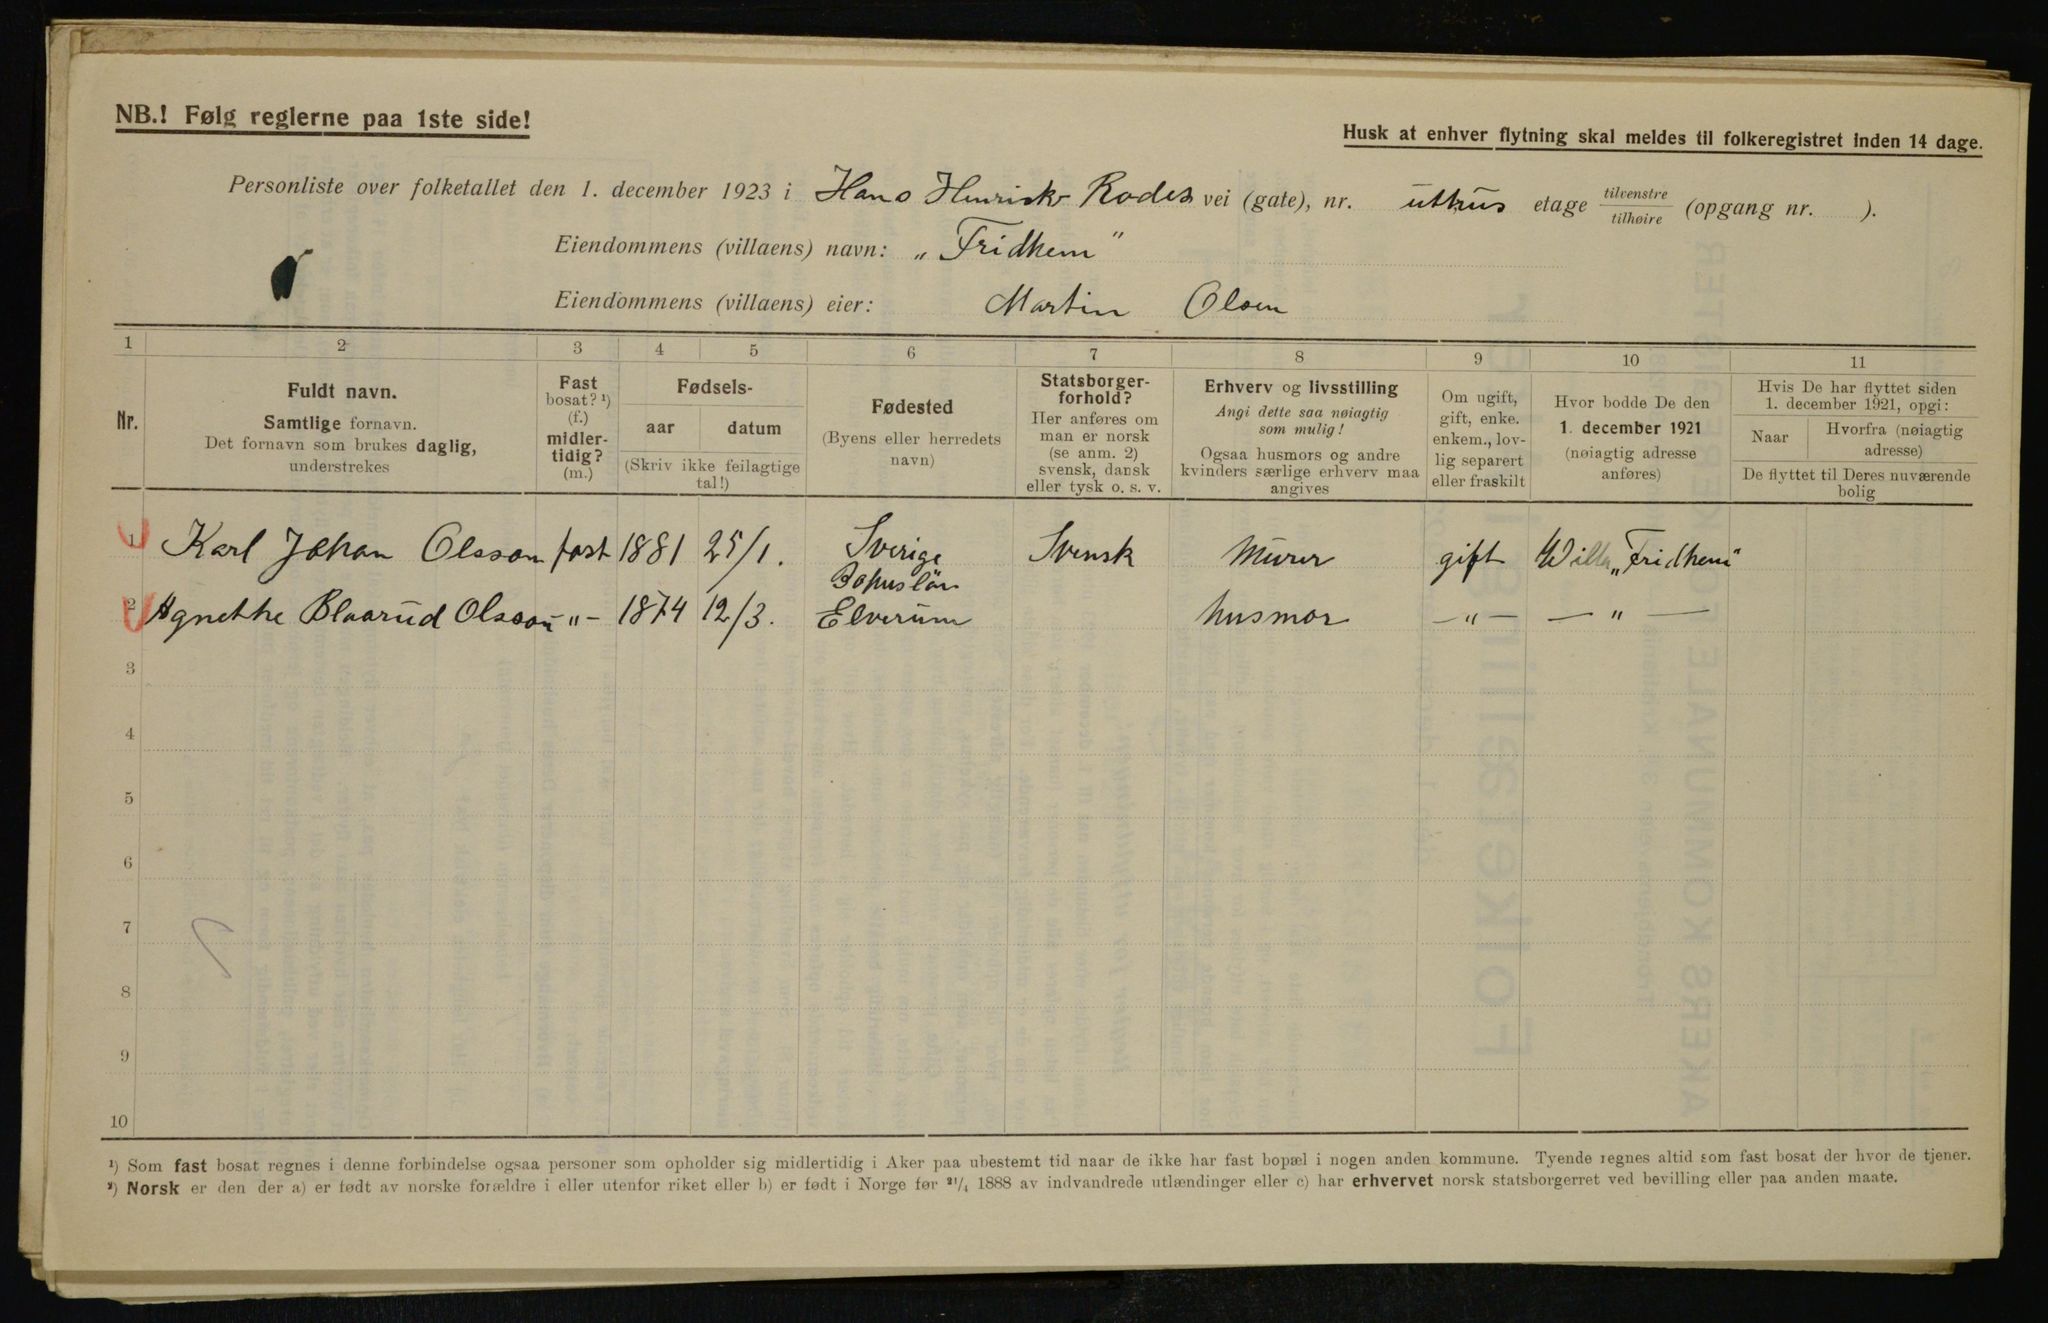 NB.! Følg reglerne paa 1ste side!
Husk at enhver flytning skal meldes til folkeregistret inden 14 dage.
Personliste over folketallet den 1. december 1923 i Hans Henrick Rodes vei (gate), nr. uthus etage tilvenstre tilhøire (opgang nr. ).
Eiendommens (villaens) navn: „Fridhem"
Eiendommens (villaens) eier: Martin Olsen
1 2 3 4 5 6 7 8 9 10 11
Nr.
Fuldt navn.
Samtlige fornavn.
Det fornavn som brukes daglig,
understrekes
Fast
bosat? ¹)
(f.)
midler-
tidig?
(m.)
Fødsels-
aar datum
(Skriv ikke feilagtige
tal!)
Fødested
(Byens eller herredets
navn)
Statsborger-
forhold?
Her anføres om
man er norsk
(se anm. 2)
svensk, dansk
eller tysk o. s. v.
Erhverv og livsstilling
Angi dette saa nøiagtig
som mulig!
Ogsaa husmors og andre
kvinders særlige erhverv maa
angives
Om ugift,
gift, enke.
enkem., lov-
lig separert
eller fraskilt
Hvor bodde De den
1. december 1921
(nøiagtig adresse
anføres)
Hvis De har flyttet siden
1. december 1921, opgi:
Naar
Hvorfra (nøiagtig
adresse)
De flyttet til Deres nuværende
bolig
1 Karl Johan Olsson fast 1881 25/1. Sverige Bohuslän Svensk Murer gift Willa „Fridhem"
2 Agnethe Blaarud Olsson „ – 1874 12/3. Elverum husmor — „ — — „ —
3
4
5
6
7
8
9
10
¹) Som fast bosat regnes i denne forbindelse ogsaa personer som opholder sig midlertidig i Aker paa ubestemt tid naar de ikke har fast bopæl i nogen anden kommune. Tyende regnes altid som fast bosat der hvor de tjener.
²) Norsk er den der a) er født av norske forældre i eller utenfor riket eller b) er født i Norge før ²¹/₄ 1888 av indvandrede utlændinger eller c) har erhvervet norsk statsborgerret ved bevilling eller paa anden maate.